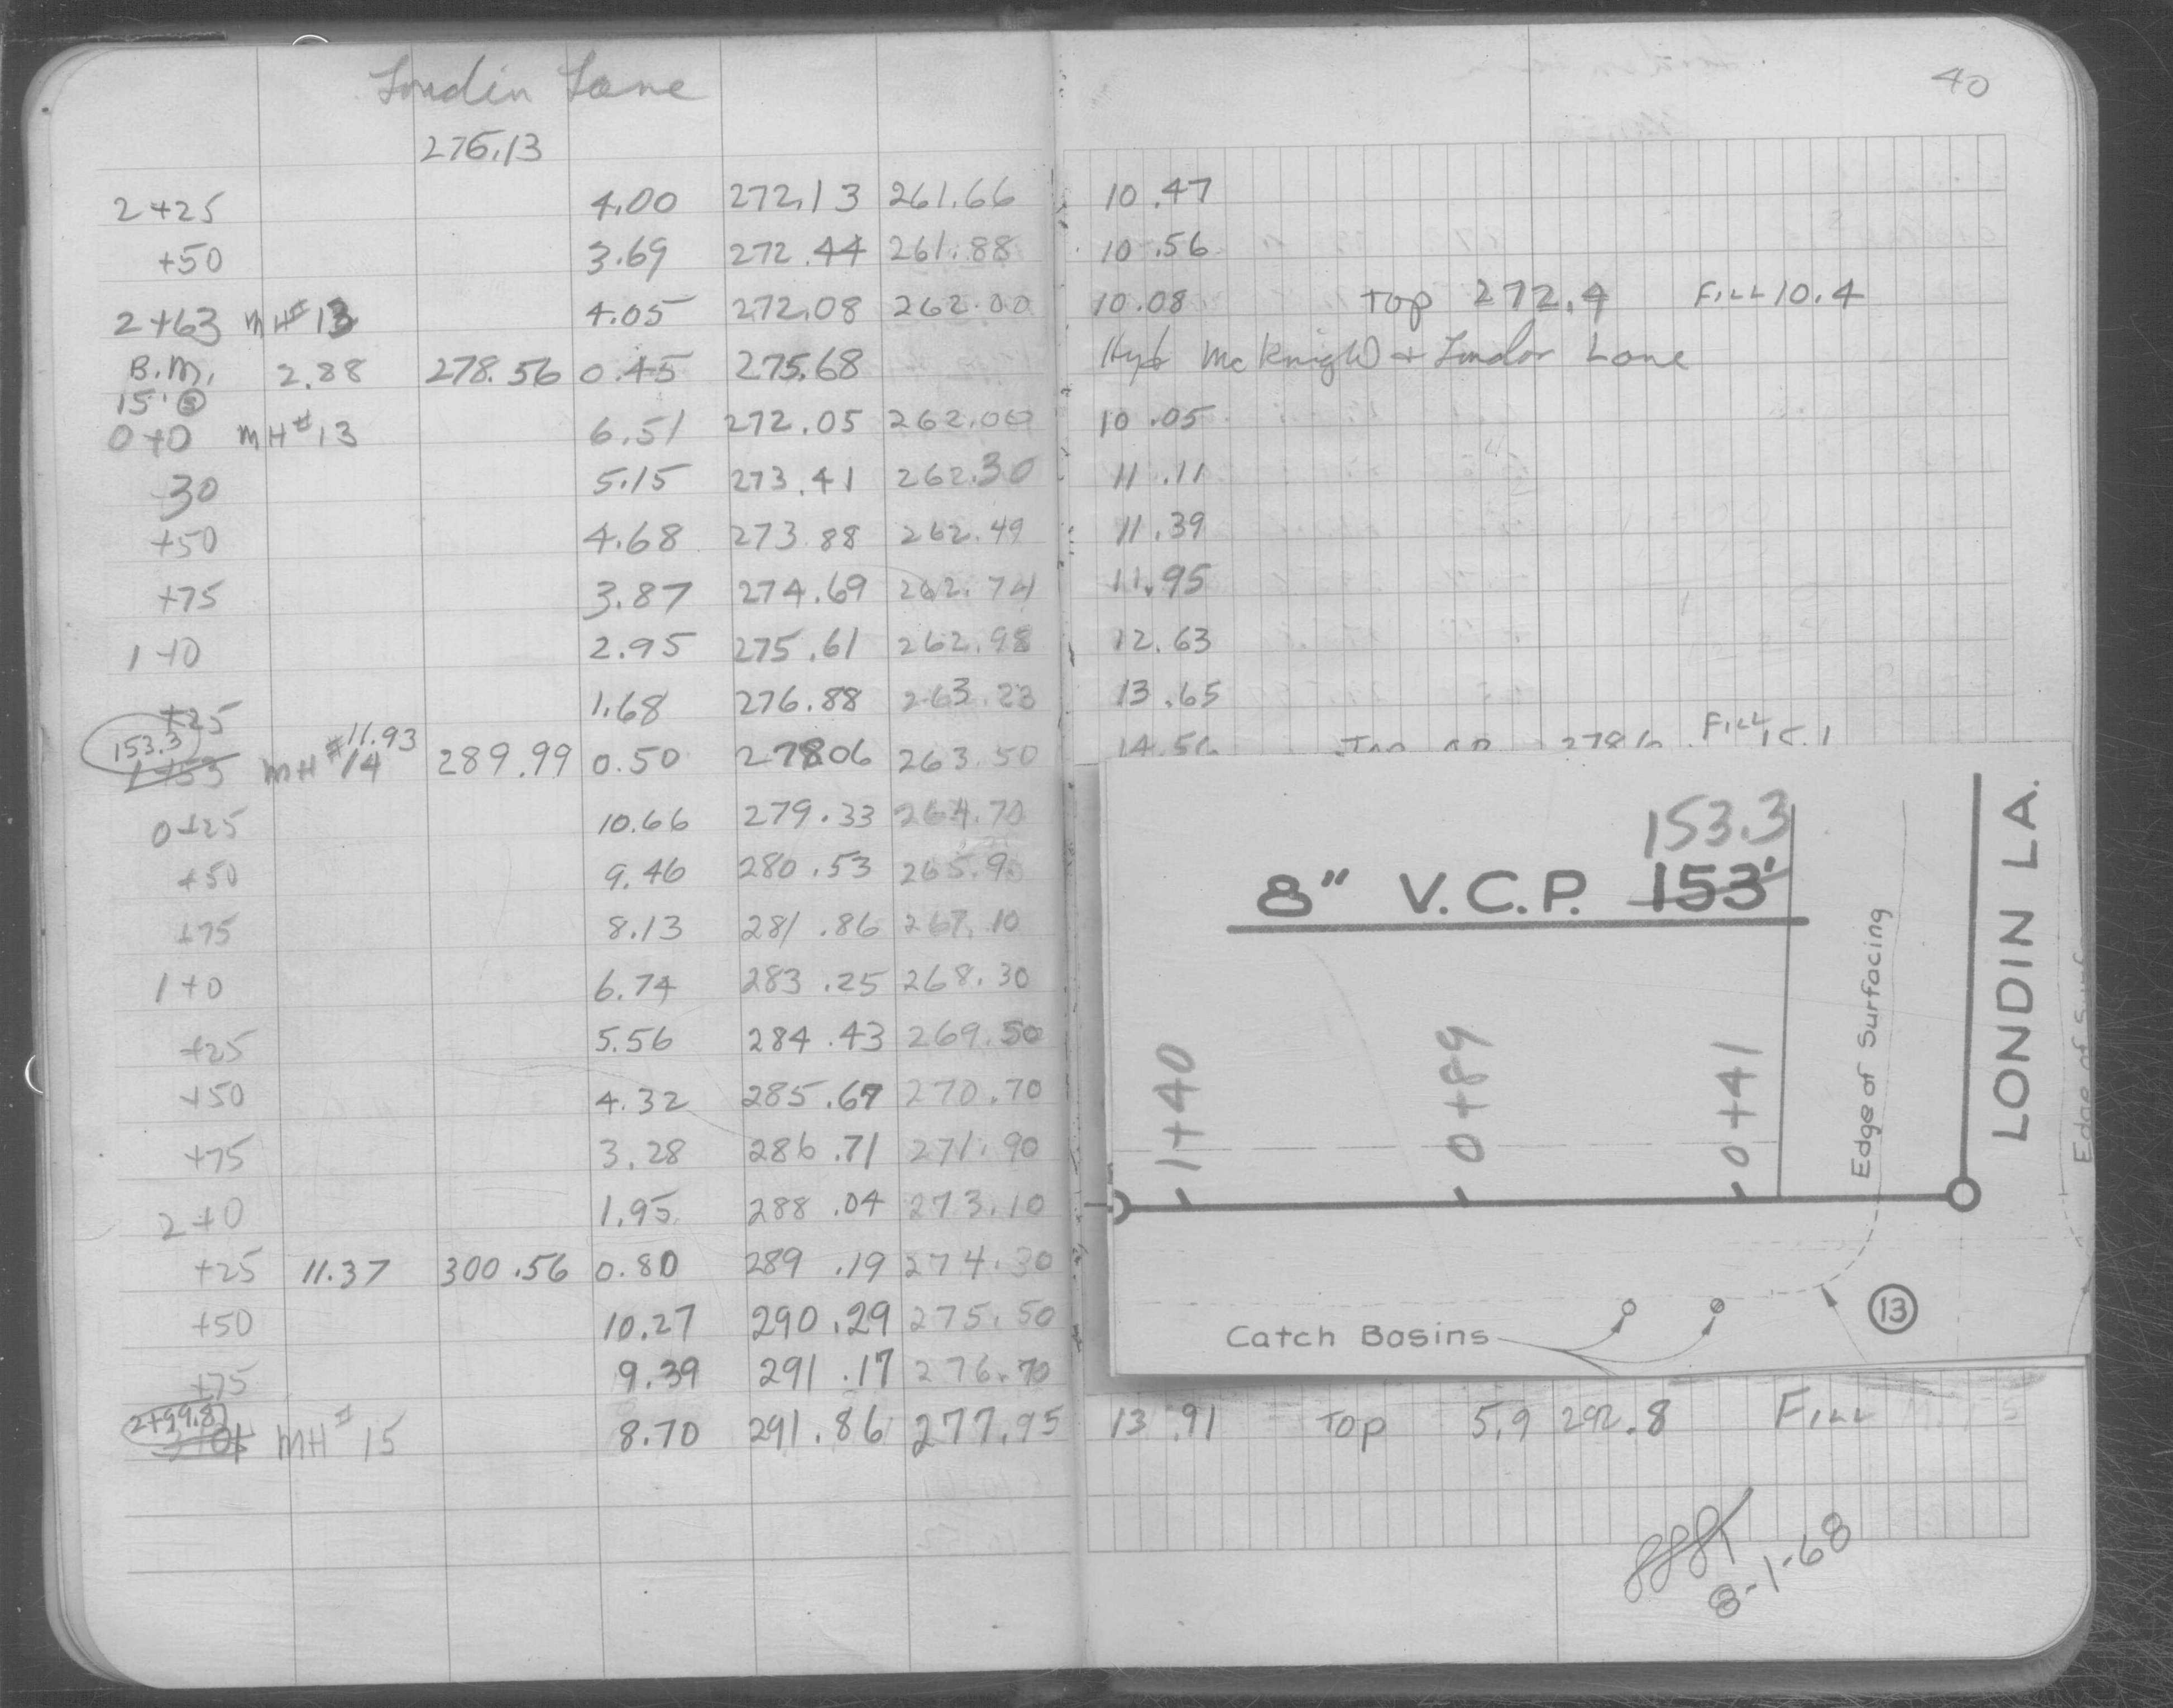 Londin Lane
40
276.13
2+25 4.00 272.13 261.66 10.47
+50 3.69 272.44 261.88 10.56
2+63 MH#13 4.05 272.08 262.00 10.08 Top 272.4 Fill 10.4
B.M. 2.88 278.56 0.45 275.68 Hyd McKnight + Londin Lane
15'
0+0 MH#13 6.51 272.05 262.00 10.05
30 5.15 273.41 262.30 11.11
+50 4.68 273.88 262.49 11.39
+75 3.87 274.69 262.74 11.95
1+0 2.95 275.61 262.98 12.63
+25 1.68 276.88 263.23 13.65
153.3
1+53 MH#14 11.93 289.99 0.50 278.06 263.50 14.56 Fill 15.1
0+25 10.66 279.33 264.70
+50 9.46 280.53 265.90
+75 8.13 281.86 267.10
1+0 6.74 283.25 268.30
+25 5.56 284.43 269.50
+50 4.32 285.67 270.70
+75 3.28 286.71 271.90
2+0 1.95 288.04 273.10
+25 11.37 300.56 0.80 289.19 274.30
+50 10.27 290.29 275.50
+75 9.39 291.17 276.70
2+99.8
MH#15 8.70 291.86 277.95 13.91 Top 5.9 292.8 Fill
8-1-68
153.3
8" V.C.P. 153'
1+40
0+89
0+41
Edge of Surfacing
LONDIN LA.
Edge of Surf
Catch Basins
13